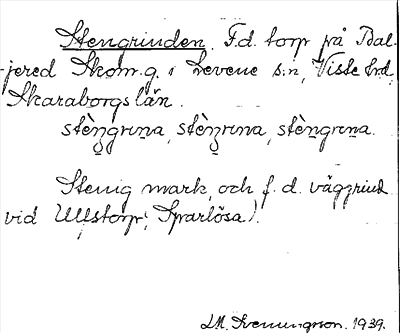 Stengrinden. F.d. torp på Bal-
jered Skom.g. i Levene s:n, Viste hd,
Skaraborgs län.
stèn̥grɩna, stèn̥grɩna, stèn̥grɩna.
Stenig mark, och f.d. väggrind
vid Ullstorp, Sparlösa).
I.M. Svenungson. 1939.